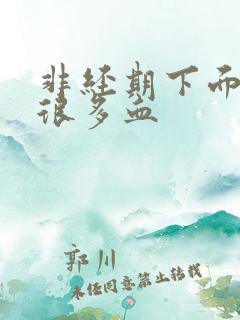 非经期下而
很多血
郭川
未经同意禁止转载